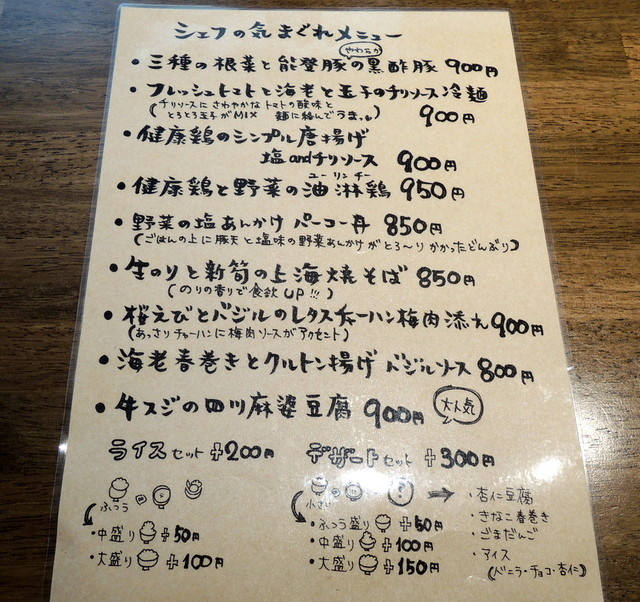 シェフの気まぐれメニュー
やわらか
・三種の根菜と能登豚の黒酢豚 900円
・フレッシュトマトと海老と玉子のチリソース冷麺
(チリソースにさわやかなトマトの酸味と
とろとろ玉子がMIX 麺に絡んでうまっ。) 900円
・健康鶏のシンプル唐揚げ
塩andチリソース 900円
ユーリンチー
・健康鶏と野菜の油淋鶏 950円
・野菜の塩あんかけ パーコー丼 850円
(ごはんの上に豚天と塩味の野菜あんかけがとろ〜りかかったどんぶり)
・生のりと新筍の上海焼そば 850円
(のりの香りで食欲UP!!!)
・桜えびとバジルのレタスチャーハン梅肉添え 900円
(あっさりチャーハンに梅肉ソースがアクセント)
・海老春巻きとクルトン揚げ バジルソース 800円
・牛スジの四川麻婆豆腐 900円 大人気
ライスセット +200円 デザートセット +300円
ふつう
・中盛り +50円
・大盛り +100円
小さい
・ふつう盛り +50円
・中盛り +100円
・大盛り +150円
・杏仁豆腐
・きなこ春巻き
・ごまだんご
・アイス
(バニラ・チョコ・杏仁)